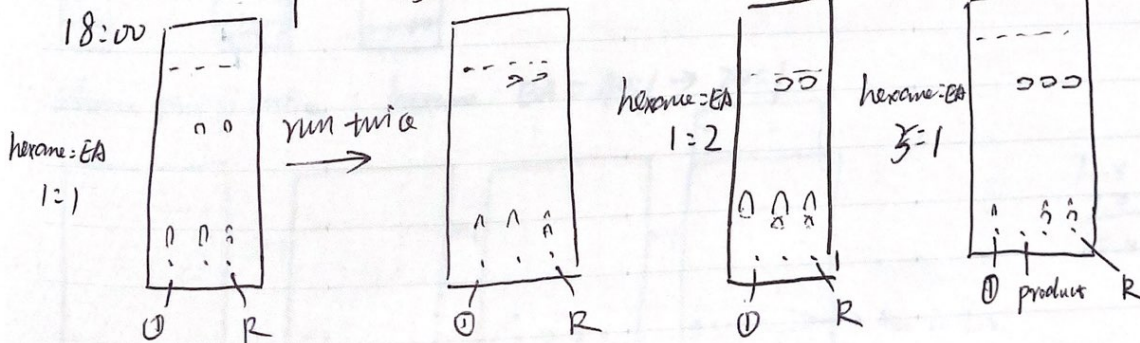 18:00
hexane:EA
1:1
① R
run twice
① R
hexane:EA
1:2
① R
hexane:EA
5:1
① product R